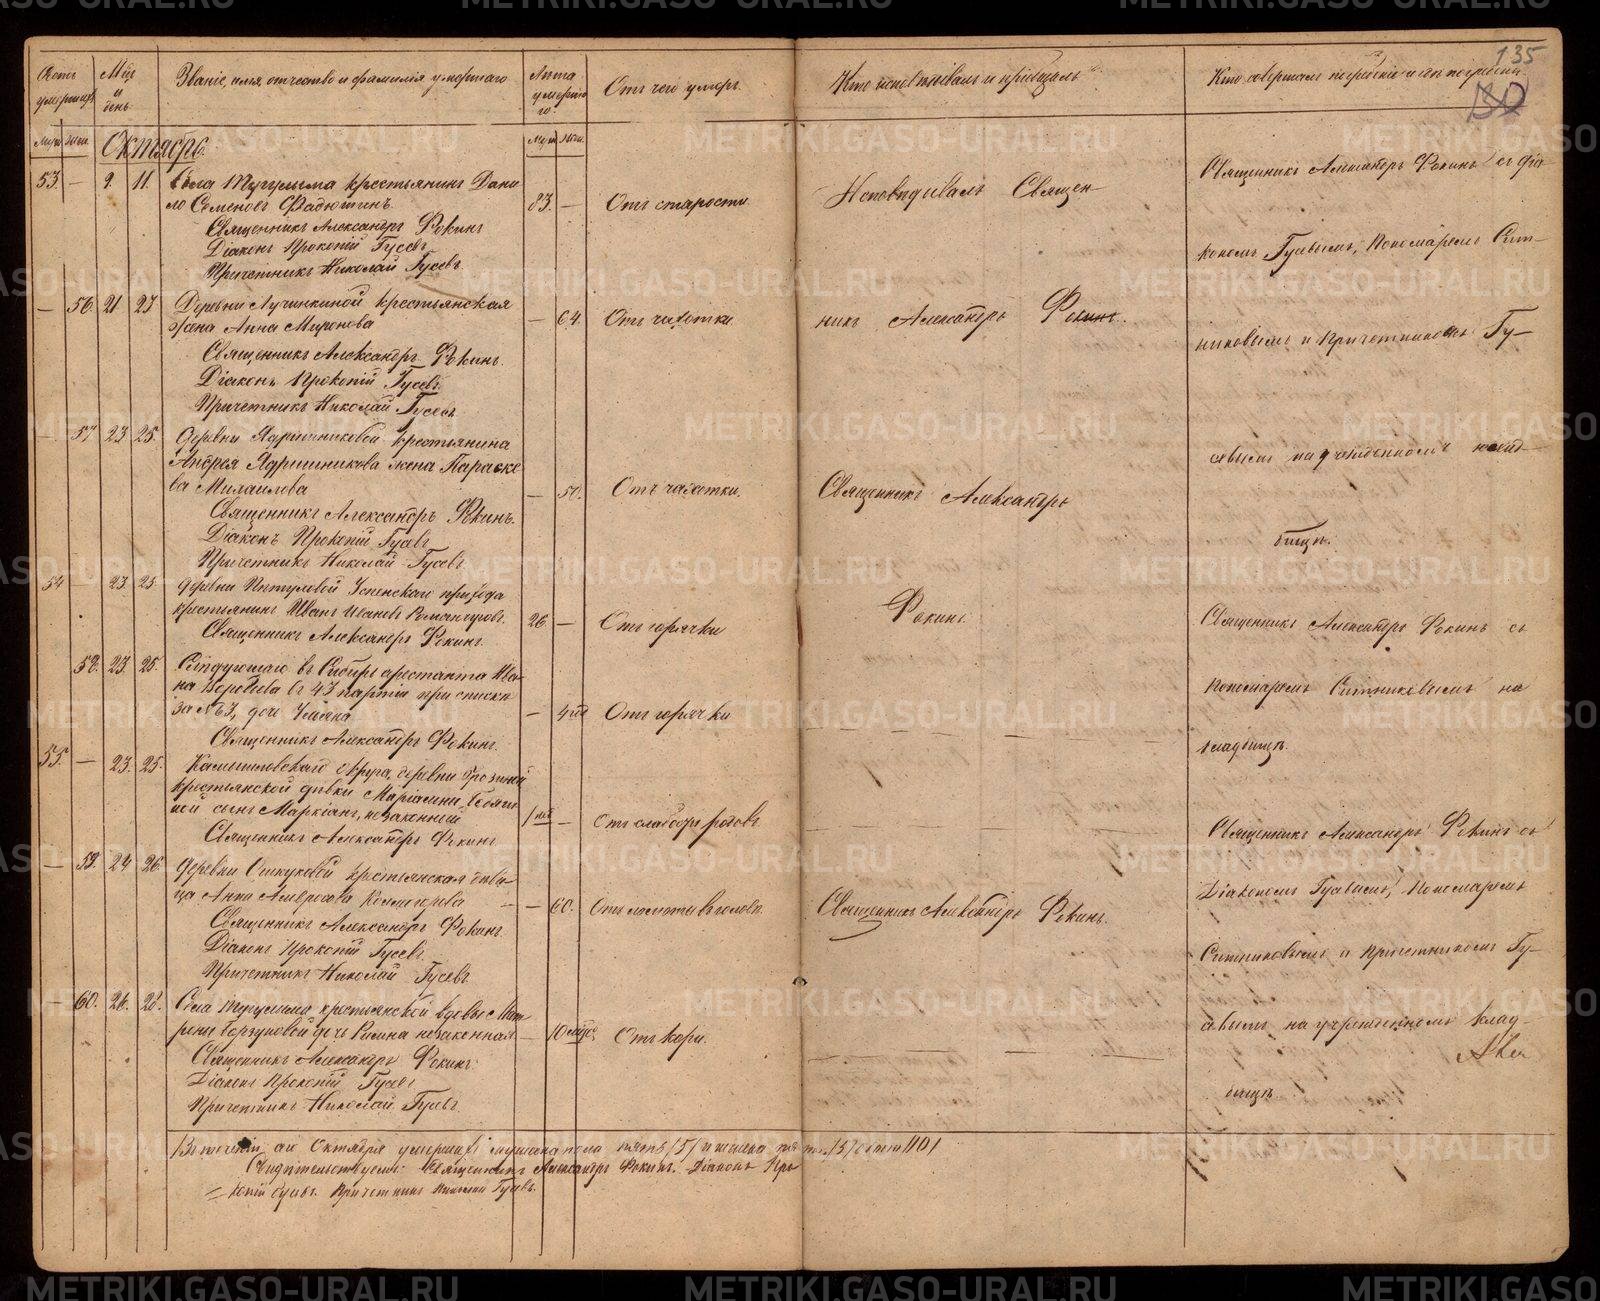 135
Счетъ умершихъ
Мѣс. и день
Званіе, имя, отчество и фамилія умершаго
Лѣта умершаго
Отъ чего умеръ
Кто исповѣдывалъ и пріобщалъ
Кто совершалъ погребеніе и гдѣ погребены
муж. жен.
Октябрь
муж. жен.
53 — 9. 11. Села Тугулыма крестьянинъ Дани
ло Семеновъ Фадюшинъ.
83. — Отъ старости
Исповѣдывалъ Священ-
Священникъ Александръ Фокинъ съ діа
Священникъ Александръ Фокинъ
Діаконъ Прокопій Гусевъ
кономъ Гусевымъ, Пономаремъ Сит-
Причетникъ Николай Гусевъ.
— 56. 21 23 Деревни Лучинкиной крестьянская
жена Анна Миронова
— 64. Отъ чахотки
никъ Александръ Фокинъ.
никовымъ и причетникомъ Гу-
Священникъ Александръ Фокинъ.
Діаконъ Прокопій Гусевъ.
Причетникъ Николай Гусевъ.
— 57 23 25. Деревни Ядришниковой крестьянина
Андрея Ядришникова жена Параске
ва Михаилова
— 50. Отъ чахотки.
Священникъ Александръ
севымъ на учрежденномъ клад-
бищѣ.
Священникъ Александръ Фокинъ.
Діаконъ Прокопій Гусевъ
Причетникъ Николай Гусевъ
54 — 23. 25 деревни Успенскаго прихода
крестьянинъ Иванъ Ивановъ
26 — Отъ горячки
Фокинъ.
Священникъ Александръ Фокинъ съ
Священникъ Александръ Фокинъ.
58. 23. 25. Слѣдующаго въ Сибирь арестанта Ива-
на въ 43 партіи при спискѣ
за № 63, дочь
— 4 Отъ горячки
Пономаремъ Ситниковымъ на
кладбищѣ.
Священникъ Александръ Фокинъ.
55. — 23. 25. Камышловскаго округа, деревни
крестьянской дѣвки
сынъ Маркіанъ, незаконный
1 нед. — Отъ слабости родовъ
Священникъ Александръ Фокинъ
Священникъ Александръ Фокинъ съ
— 59. 24 26. деревни Ошкуковой крестьянская дѣви-
ца Анна Амвросова Колмогорова
— 60. Отъ ломоты въ головѣ.
Священникъ Александръ Фокинъ.
Діакономъ Гусевымъ, Пономаремъ
Священникъ Александръ Фокинъ.
Діаконъ Прокопій Гусевъ.
Ситниковымъ и причетникомъ Гу-
Причетникъ Николай Гусевъ
— 60. 26. 28. Села Тугулыма крестьянской вдовы Мат
рены дочь незаконная
— 10 мѣс. Отъ кори.
севымъ на учрежденномъ клад-
бищѣ
Священникъ Александръ Фокинъ.
Діаконъ Прокопій Гусевъ
Причетникъ Николай Гусевъ.
Октября умершихъ мужеска пола пять /5/ и женска пять /5/ обоего /10/
Свидѣтельствуемъ: Священникъ Александръ Фокинъ. Діаконъ Про
копій Гусевъ. Причетникъ Николай Гусевъ.
METRIKI.GASO-URAL.RU